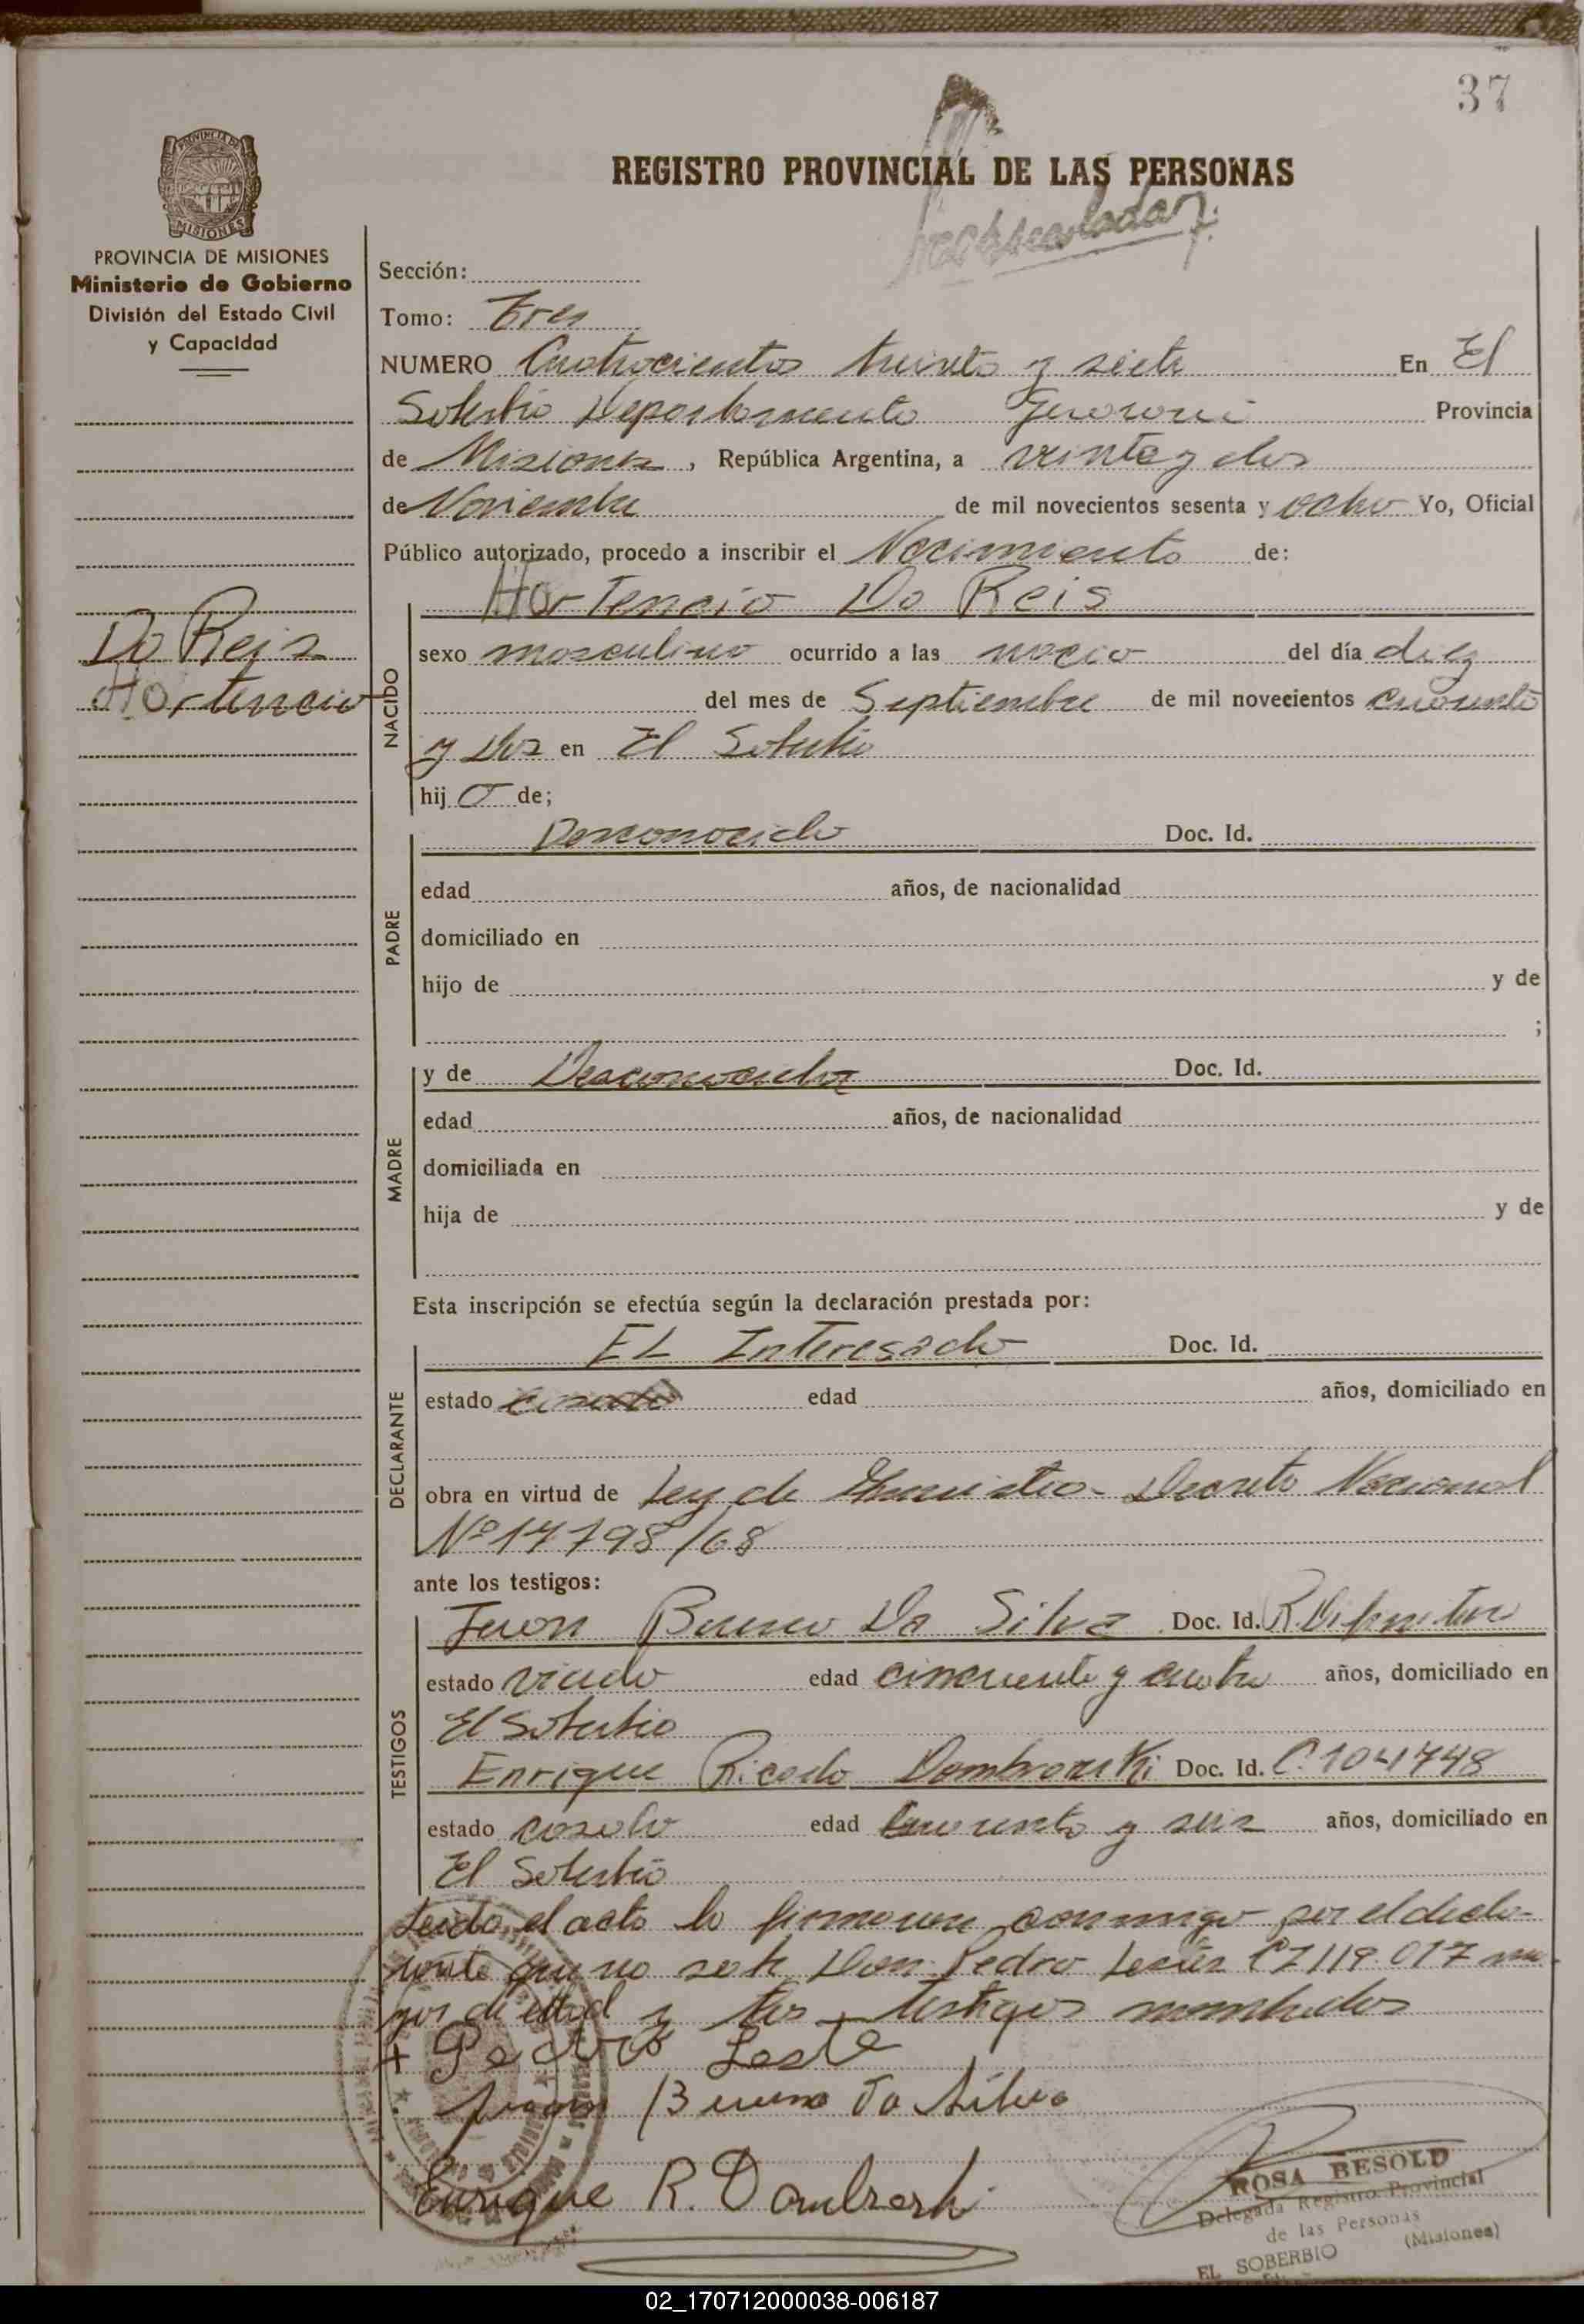 37
REGISTRO PROVINCIAL DE LAS PERSONAS
PROVINCIA DE MISIONES
Ministerio de Gobierno
División del Estado Civil
y Capacidad
Do Reis
Hortencio
Sección:
Tomo: Tres
NUMERO Cuatrocientos treinta y siete En El
Soberbio Departamento Guarani Provincia
de Misiones, República Argentina, a veinte y dos
de Noviembre de mil novecientos sesenta y ocho Yo, Oficial
Público autorizado, procedo a inscribir el Nacimiento de:
NACIDO
Hortencio Do Reis
sexo masculino ocurrido a las del día diez
del mes de Septiembre de mil novecientos cuarenta
y dos en El Soberbio
hijo de;
PADRE
Desconocido Doc. Id.
edad años, de nacionalidad
domiciliado en
hijo de y de
;
MADRE
y de Desconocida Doc. Id.
edad años, de nacionalidad
domiciliada en
hija de y de
Esta inscripción se efectúa según la declaración prestada por:
DECLARANTE
EL Interesado Doc. Id.
estado casado edad años, domiciliado en
obra en virtud de Ley de Amnistia - Decreto Nacional
Nº 17798/68
ante los testigos:
TESTIGOS
Juan Bueno Da Silva Doc. Id.
estado viudo edad cincuenta y cuatro años, domiciliado en
El Soberbio
Enrique Ricardo Dombrouski Doc. Id. C.1041748
estado casado edad cuarenta y seis años, domiciliado en
El Soberbio
Leido el acta la firmaron conmigo por el decla-
rante que no sabe Don Pedro 119.017 ma-
yor de edad y los testigos nombrados
+ Pedro Leste
Juan Bueno Da Silva
Enrique R. Dombroski
ROSA BESOLD
Delegada Registro Provincial
de las Personas
EL SOBERBIO (Misiones)
02_170712000038-006187